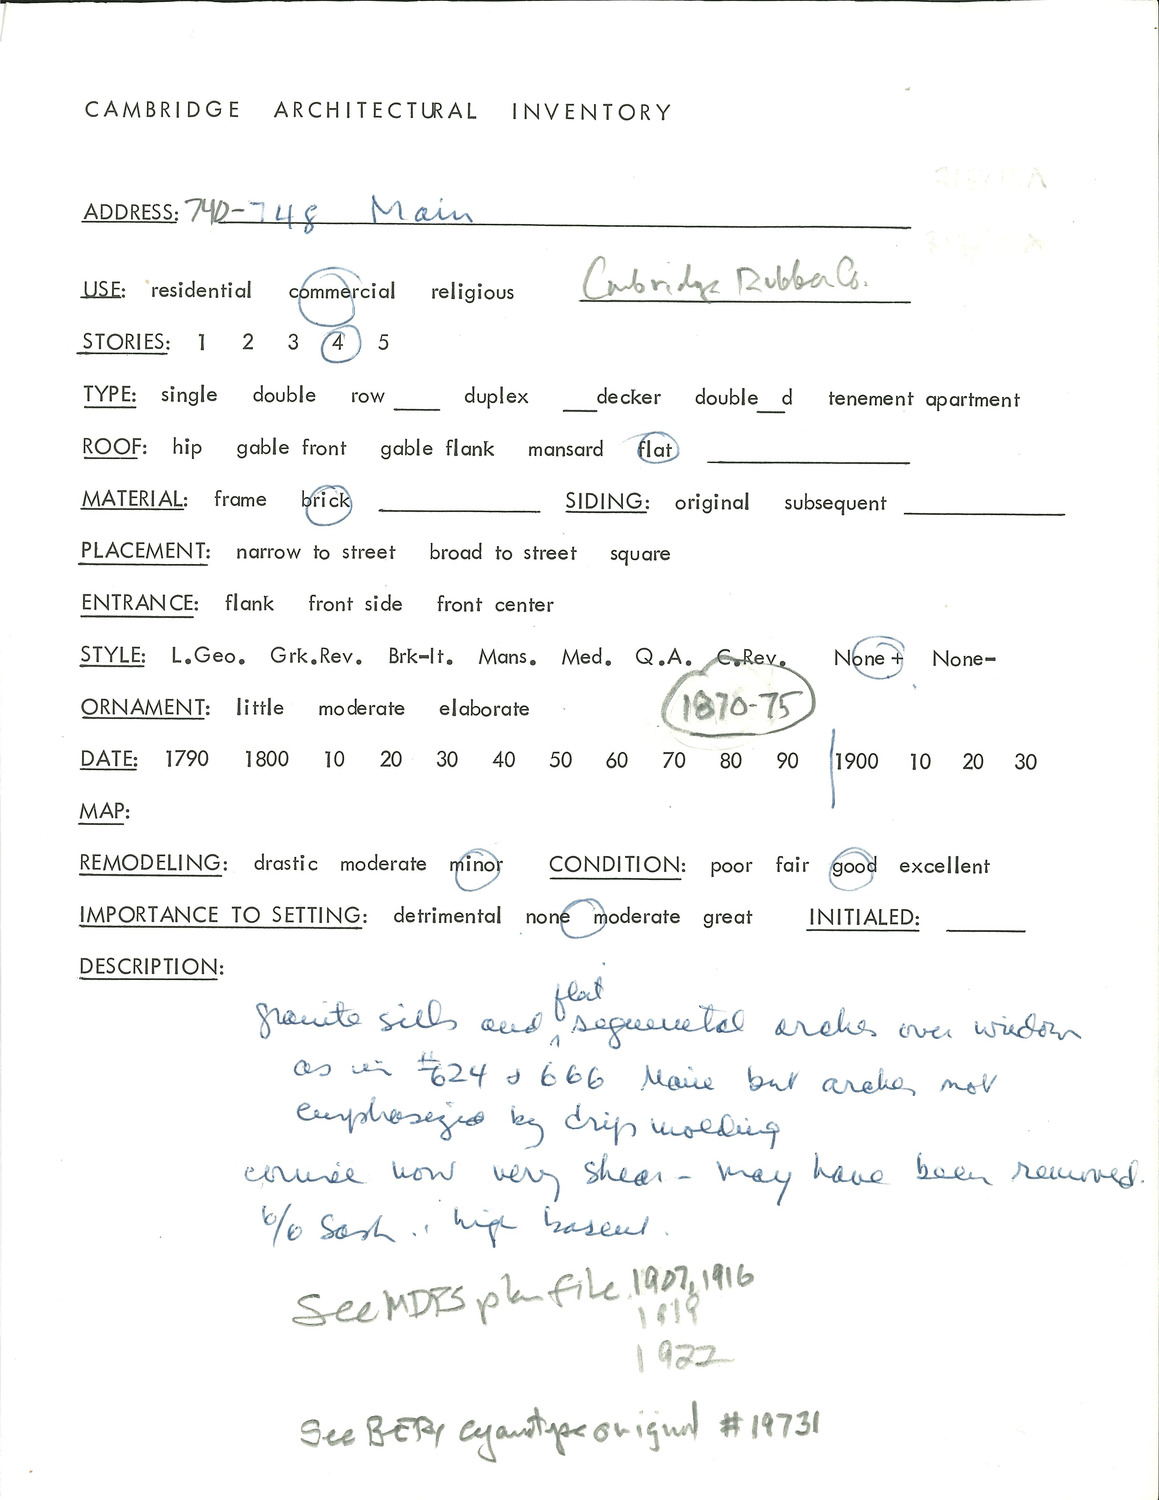 CAMBRIDGE ARCHITECTURAL INVENTORY
ADDRESS: 740-748 Main
USE: residential commercial religious Cambridge Rubber Co.
STORIES: 1 2 3 4 5
TYPE: single double row ___ duplex ___decker double__d tenement apartment
ROOF: hip gable front gable flank mansard flat
MATERIAL: frame brick SIDING: original subsequent
PLACEMENT: narrow to street broad to street square
ENTRANCE: flank front side front center
STYLE: L.Geo. Grk.Rev. Brk-It. Mans. Med. Q.A. C.Rev. None + None-
ORNAMENT: little moderate elaborate 1870-75
DATE: 1790 1800 10 20 30 40 50 60 70 80 90 1900 10 20 30
MAP:
REMODELING: drastic moderate minor CONDITION: poor fair good excellent
IMPORTANCE TO SETTING: detrimental none moderate great INITIALED:
DESCRIPTION:
granite sills and flat segmental arches over window
as in #624 & 666 Main but arches not
emphasized by drip molding
cornice now very shear - may have been removed.
6/6 Sash .. high
See MDPS plan file 1907, 1916
1919
1922
See BERy cyanotype original #19731